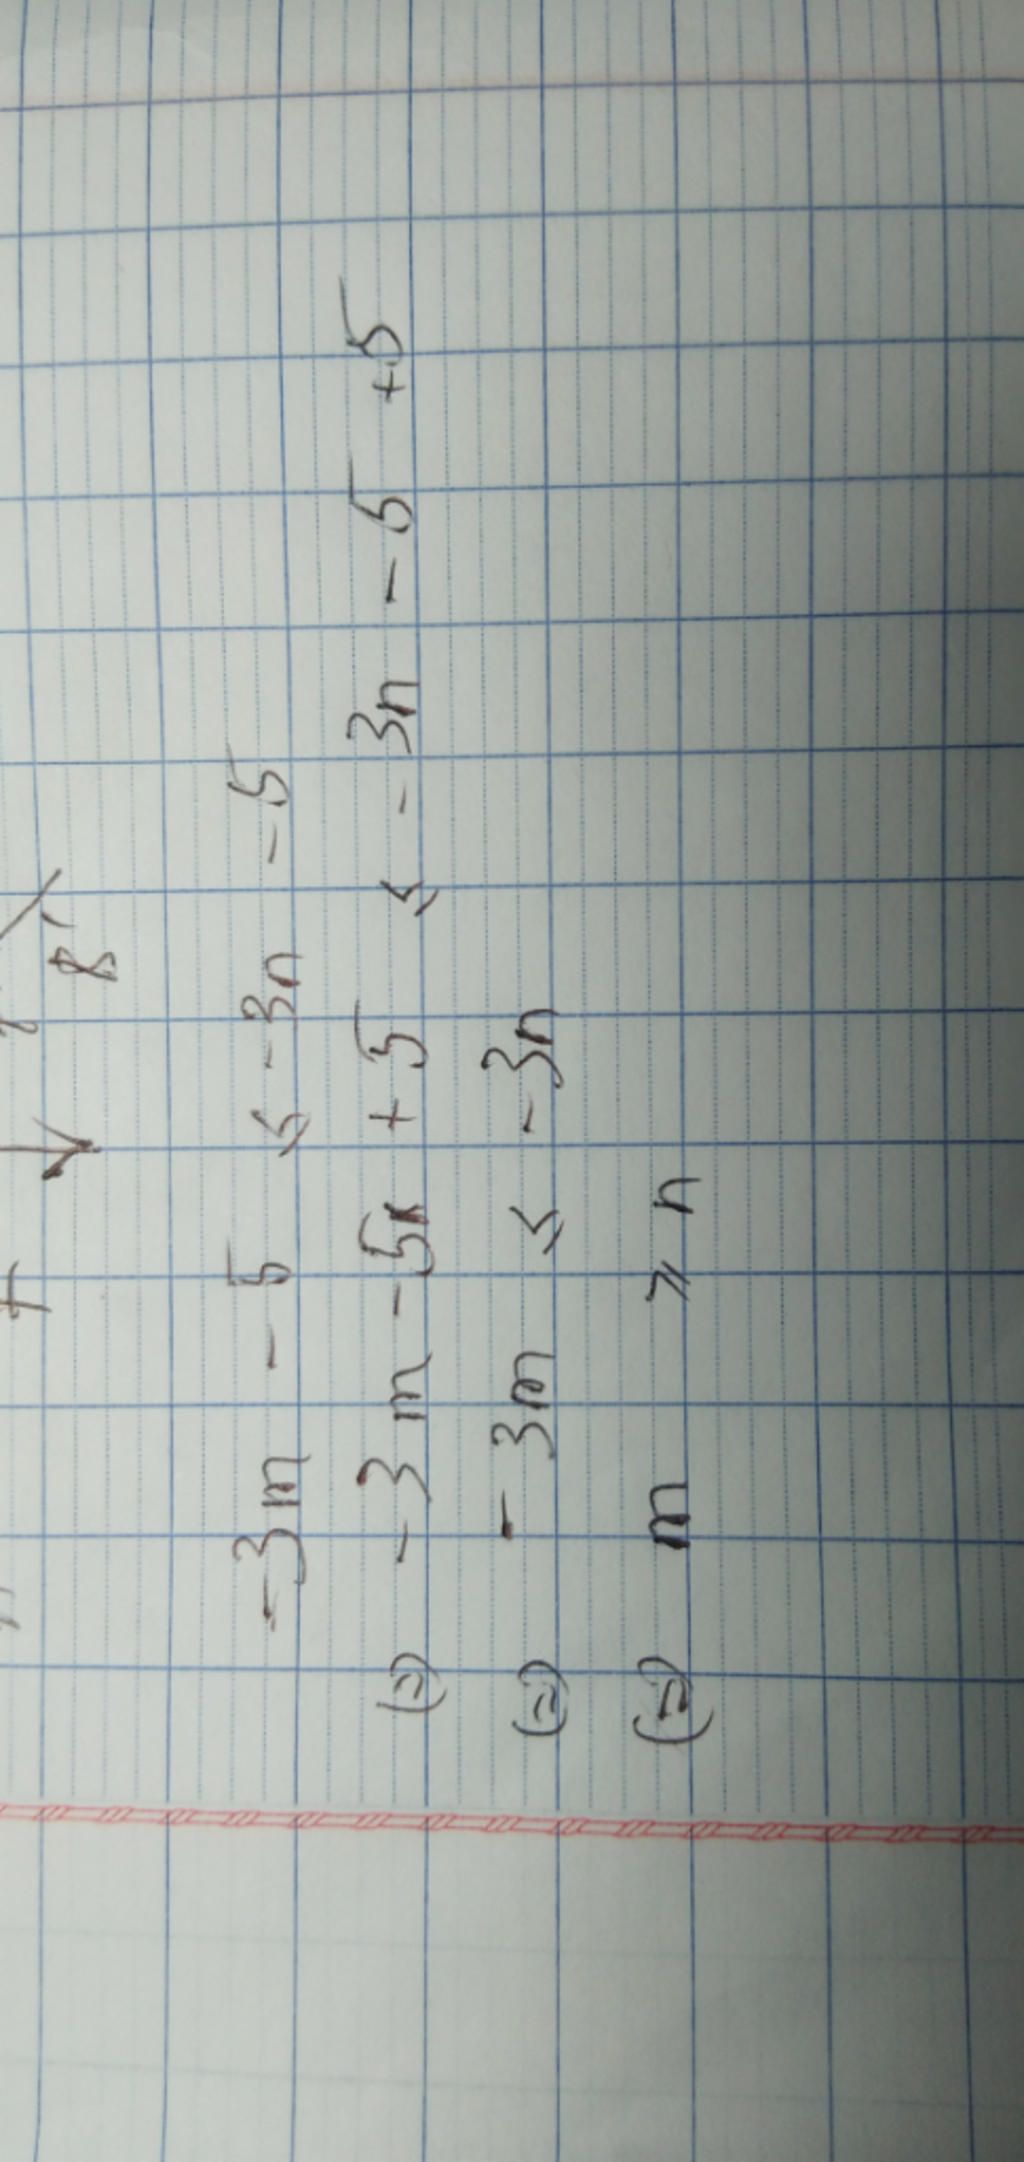 8
-3m - 5 ≤ -3n - 5
(=) -3m - 5 + 5 ≤ -3n - 5 + 5
(=) -3m ≤ -3n
(=) m ≥ n